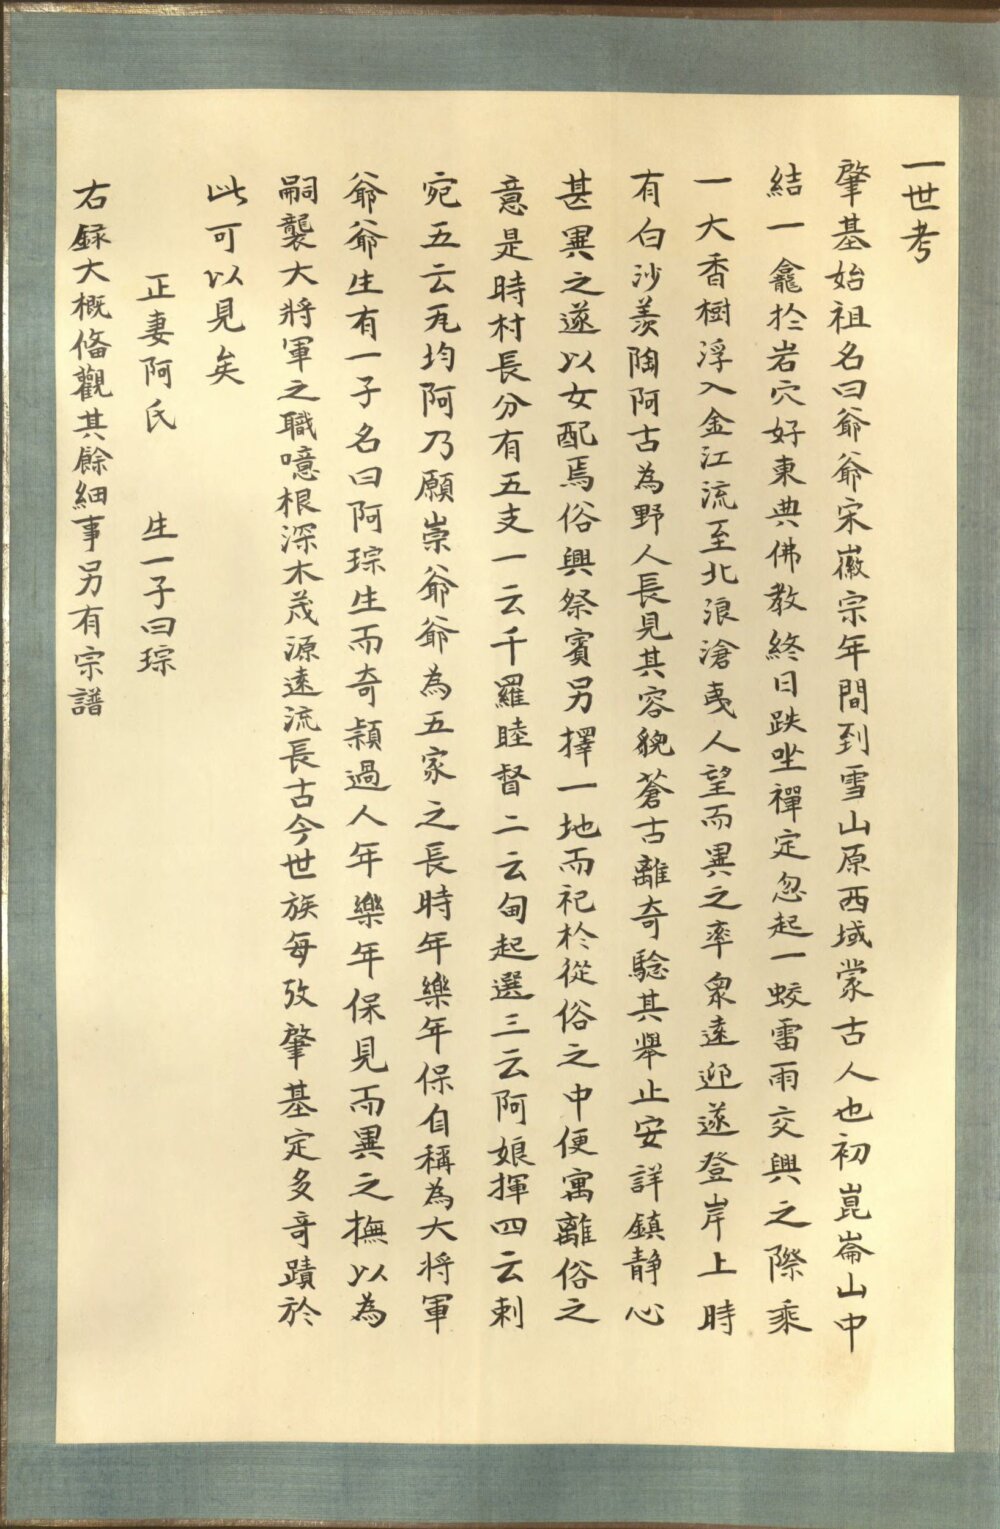 一世考
肇基始祖名曰爺爺宋徽宗年間到雪山原西域蒙古人也初崑崙山中
結一龕扵岩穴好東典佛教終日趺坐禪定忽起一蛟雷雨交興之際乘
一大香樹浮入金江流至北浪滄夷人望而異之率衆遠迎遂登岸上時
有白沙羨陶阿古為野人長見其容貌蒼古離奇騐其舉止安詳鎮静心
甚異之遂以女配焉俗興祭賓另擇一地而祀扵從俗之中便寓離俗之
意是時村長分有五支一云千羅睦督二云甸起選三云阿娘揮四云剌
宛五云瓦均阿乃願崇爺爺為五家之長時年樂年保自稱為大將軍
爺爺生有一子名曰阿琮生而奇穎過人年樂年保見而異之撫以為
嗣襲大將軍之職噫根深木茂源遠流長古今世族每攷肇基定多奇蹟於
此可以見矣
正妻阿氏　生一子曰琮
右録大概俻觀其餘細事另有宗譜